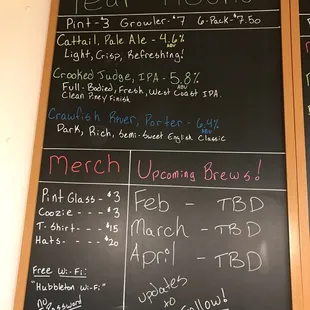 Pint-$3 Growler-$7 6-Pack-$7.50
Cattail, Pale Ale - 4.6% ABV
Light, Crisp, Refreshing!
Crooked Judge, IPA - 5.8% ABV
Full-Bodied, Fresh, West Coast IPA.
Clean Piney Finish
Crawfish River, Porter - 6.4% ABV
Dark, Rich, Semi-Sweet English Classic
Merch
Pint Glass - $3
Coozie - - - $3
T-Shirt - - - $15
Hats - - - - $20
Free Wi-Fi:
"Hubbleton Wi-Fi"
No Password
Upcoming Brews!
Feb - TBD
March - TBD
April - TBD
updates
to
Follow!